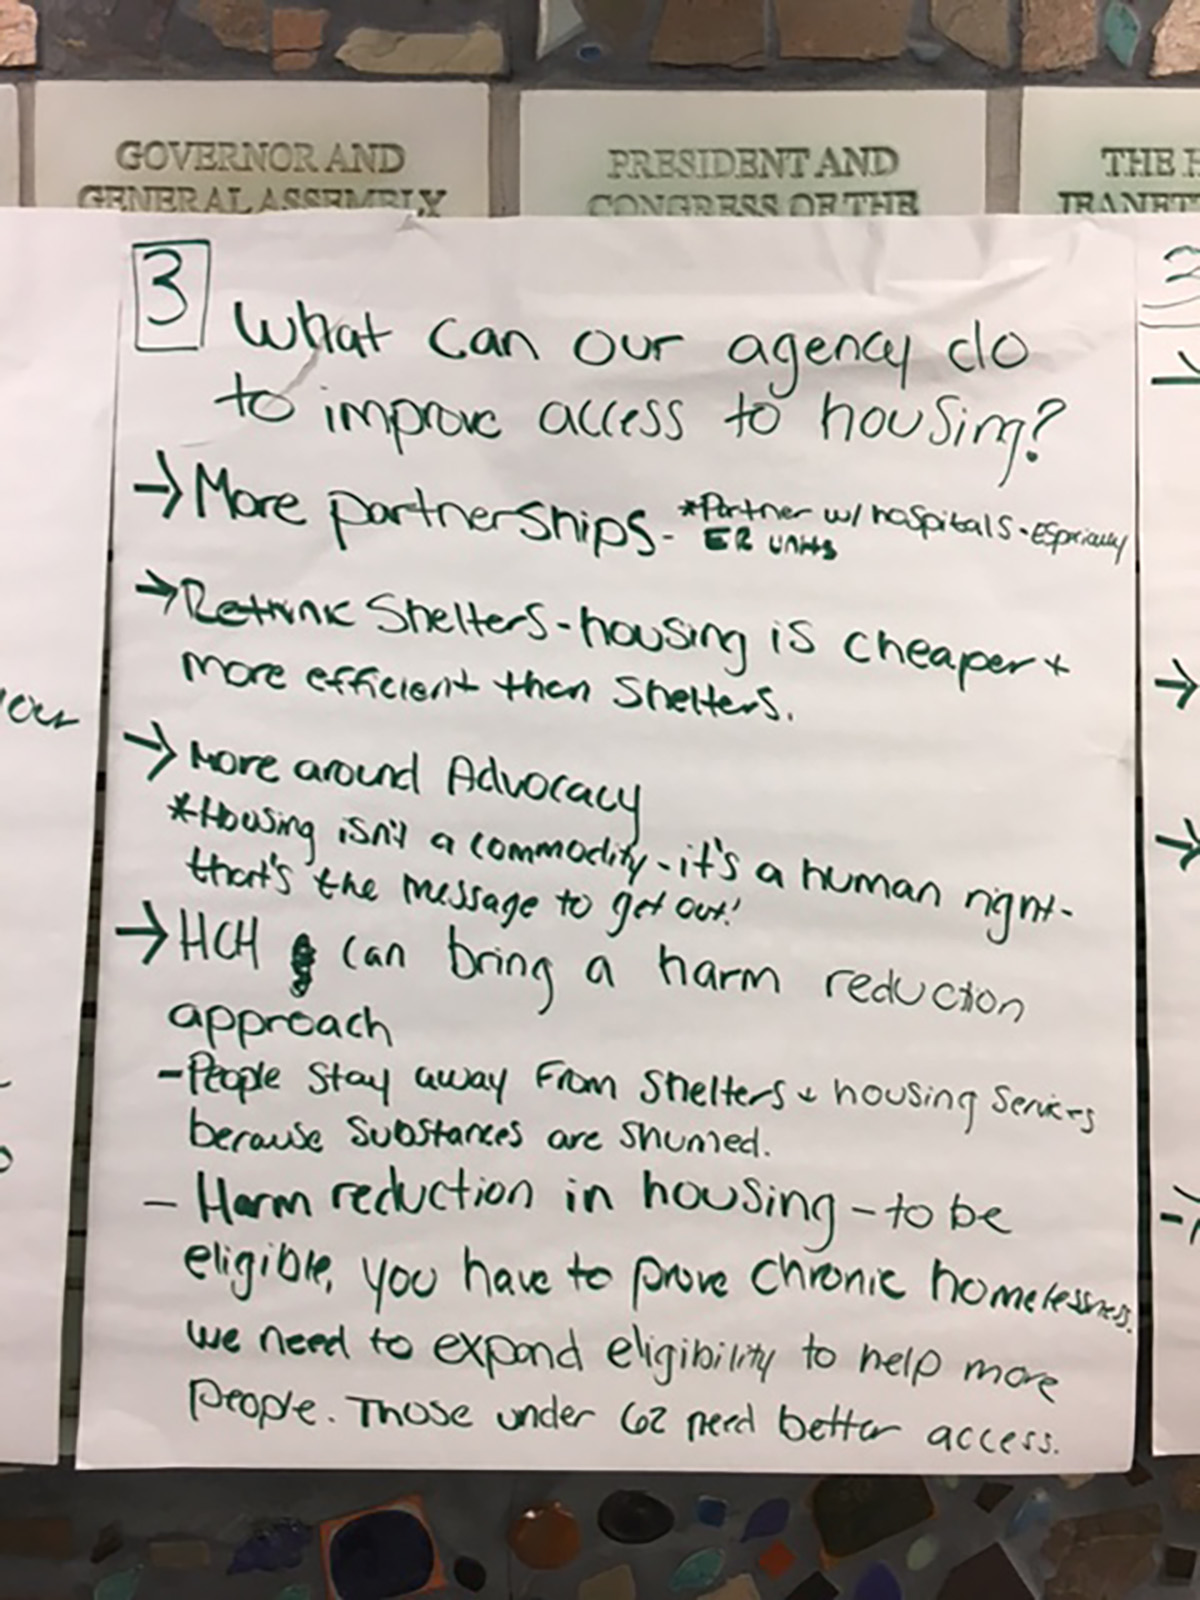 GOVERNOR AND
GENERAL ASSEMBLY
PRESIDENT AND
CONGRESS OF THE
THE H
JEANET
3
What can our agency do
to improve access to housing?
→ More partnerships - *Partner w/ hospitals - Especially
ER units
→ Rethink Shelters - housing is cheaper +
more efficient than Shelters.
→ More around Advocacy
*Housing isn't a commodity - it's a human right -
that's the message to get out!
→ HCH can bring a harm reduction
approach
- People stay away from shelters + housing services
because substances are shunned.
- Harm reduction in housing - to be
eligible, you have to prove chronic homelessness.
we need to expand eligibility to help more
people. Those under 62 need better access.